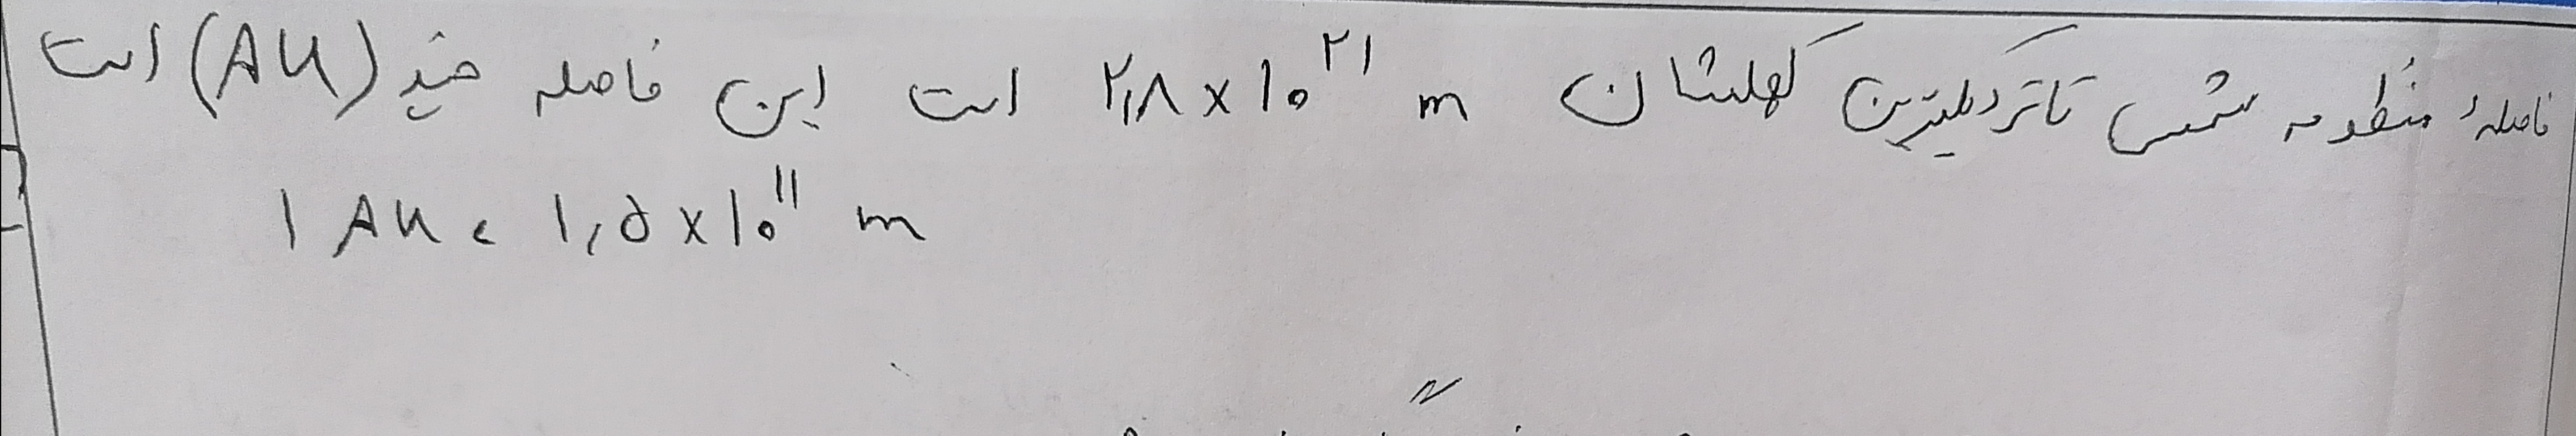 فاصلهٔ منظومه شمسی تا نزدیکترین کهکشان ۲٫۸×۱۰^۲۱ m است این فاصله چند (AU) است
۱ AU = ۱٫۵×۱۰^۱۱ m